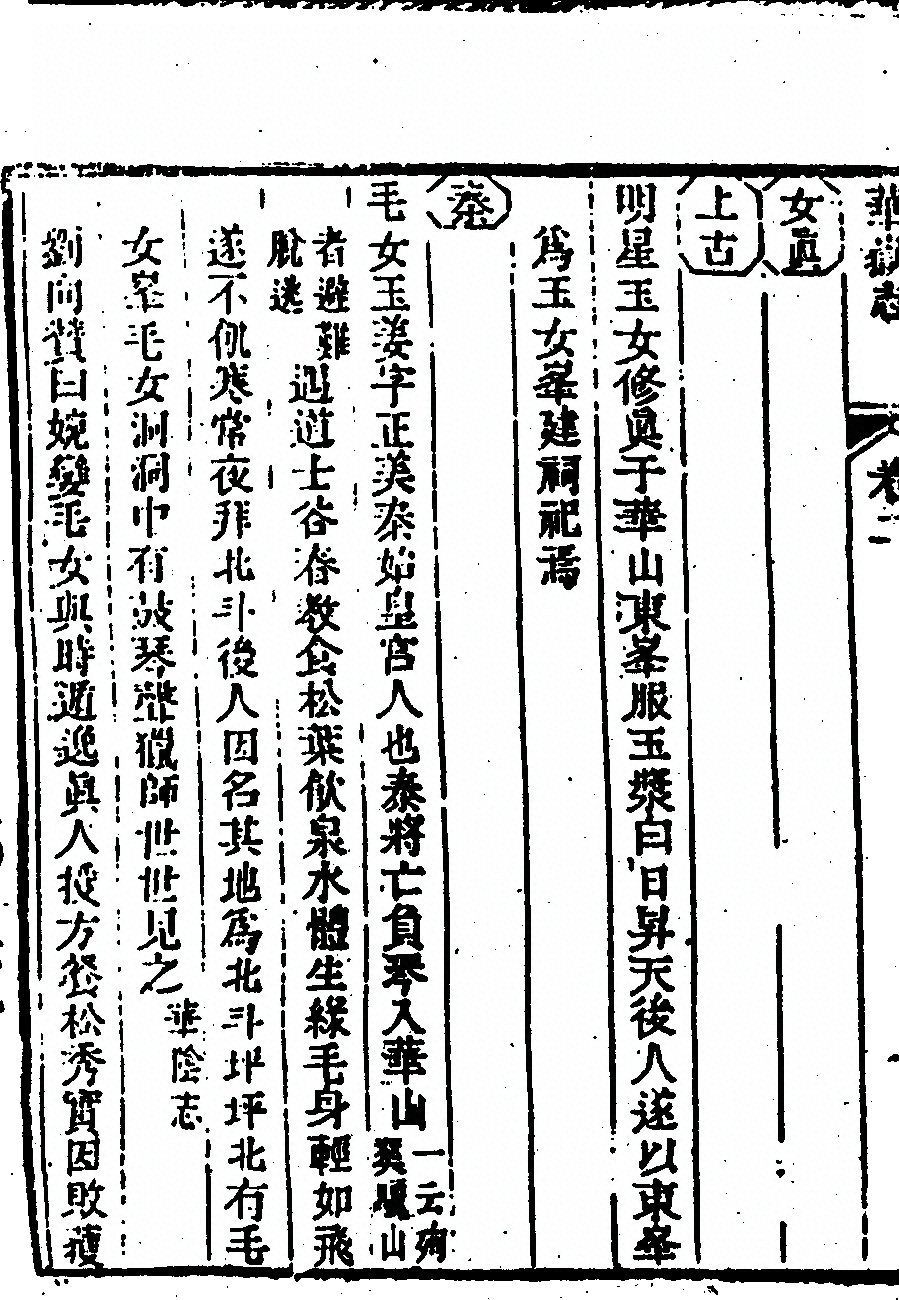 華嶽志 卷二
女眞
上古
明星玉女修眞于華山東峯服玉漿白日昇天後人遂以東峯
爲玉女峯建祠祀焉
秦
毛女玉姜字正美秦始皇宮人也秦將亡負琴入華山一云殉驪山
者避難脫逃遇道士谷春教食松葉飲泉水體生綠毛身輕如飛
遂不飢寒常夜拜北斗後人因名其地爲北斗坪坪北有毛
女峯毛女洞洞中有鼓琴聲獵師世世見之華陰志
劉向贊曰婉孌毛女與時遁逸眞人授方餐松秀實因敗獲